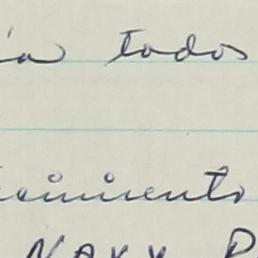 ía todos
cimiento
NAVY P